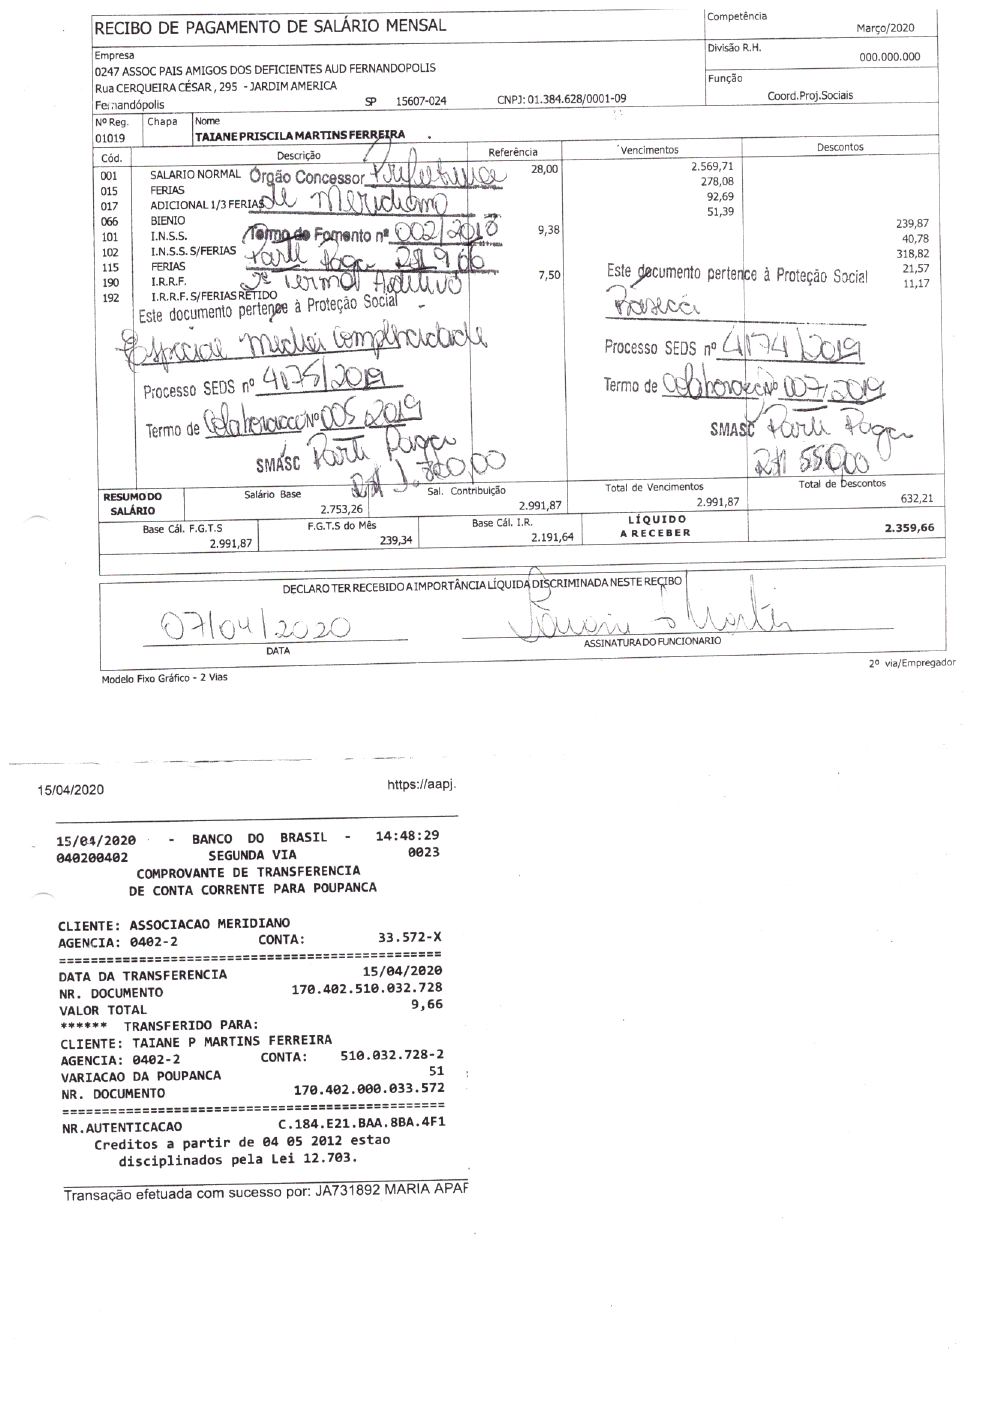 RECIBO DE PAGAMENTO DE SALÁRIO MENSAL
Competência
Março/2020
Empresa
0247 ASSOC PAIS AMIGOS DOS DEFICIENTES AUD FERNANDOPOLIS
Rua CERQUEIRA CÉSAR, 295 - JARDIM AMERICA
Fernandópolis SP 15607-024 CNPJ: 01.384.628/0001-09
Divisão R.H.
000.000.000
Função
Coord.Proj.Sociais
Nº Reg. Chapa Nome
01019 TAIANE PRISCILA MARTINS FERREIRA
Cód. Descrição Referência Vencimentos Descontos
001 SALARIO NORMAL 28,00 2.569,71
015 FERIAS 278,08
017 ADICIONAL 1/3 FERIAS 92,69
066 BIENIO 51,39
101 I.N.S.S. 9,38 239,87
102 I.N.S.S. S/FERIAS 40,78
115 FERIAS 318,82
190 I.R.R.F. 7,50 21,57
192 I.R.R.F. S/FERIAS RETIDO 11,17
Órgão Concessor Prefeitura
de Meridiano
Termo de Fomento nº 002/2018
Parte Paga R$ 9,66
Termo Aditivo
Este documento pertence à Proteção Social
Especial Media complexidade
Processo SEDS nº 4175/2019
Termo de Colaboração Nº 005/2019
SMASC Parte Paga
R$ 1.800,00
Este documento pertence à Proteção Social
Basica
Processo SEDS nº 4174/2019
Termo de Colaboração Nº 007/2019
SMASC Parte Paga
R$ 550,00
RESUMO DO SALÁRIO
Salário Base Sal. Contribuição Total de Vencimentos Total de Descontos
2.753,26 2.991,87 2.991,87 632,21
Base Cál. F.G.T.S F.G.T.S do Mês Base Cál. I.R. LÍQUIDO A RECEBER
2.991,87 239,34 2.191,64 2.359,66
DECLARO TER RECEBIDO A IMPORTÂNCIA LÍQUIDA DISCRIMINADA NESTE RECIBO
07/04/2020
DATA ASSINATURA DO FUNCIONARIO
Modelo Fixo Gráfico - 2 Vias
2º via/Empregador
15/04/2020 https://aapj.
15/04/2020 - BANCO DO BRASIL - 14:48:29
040200402 SEGUNDA VIA 0023
COMPROVANTE DE TRANSFERENCIA
DE CONTA CORRENTE PARA POUPANCA
CLIENTE: ASSOCIACAO MERIDIANO
AGENCIA: 0402-2 CONTA: 33.572-X
================================================
DATA DA TRANSFERENCIA 15/04/2020
NR. DOCUMENTO 170.402.510.032.728
VALOR TOTAL 9,66
****** TRANSFERIDO PARA:
CLIENTE: TAIANE P MARTINS FERREIRA
AGENCIA: 0402-2 CONTA: 510.032.728-2
VARIACAO DA POUPANCA 51
NR. DOCUMENTO 170.402.000.033.572
================================================
NR.AUTENTICACAO C.184.E21.BAA.8BA.4F1
Creditos a partir de 04 05 2012 estao
disciplinados pela Lei 12.703.
Transação efetuada com sucesso por: JA731892 MARIA APAF